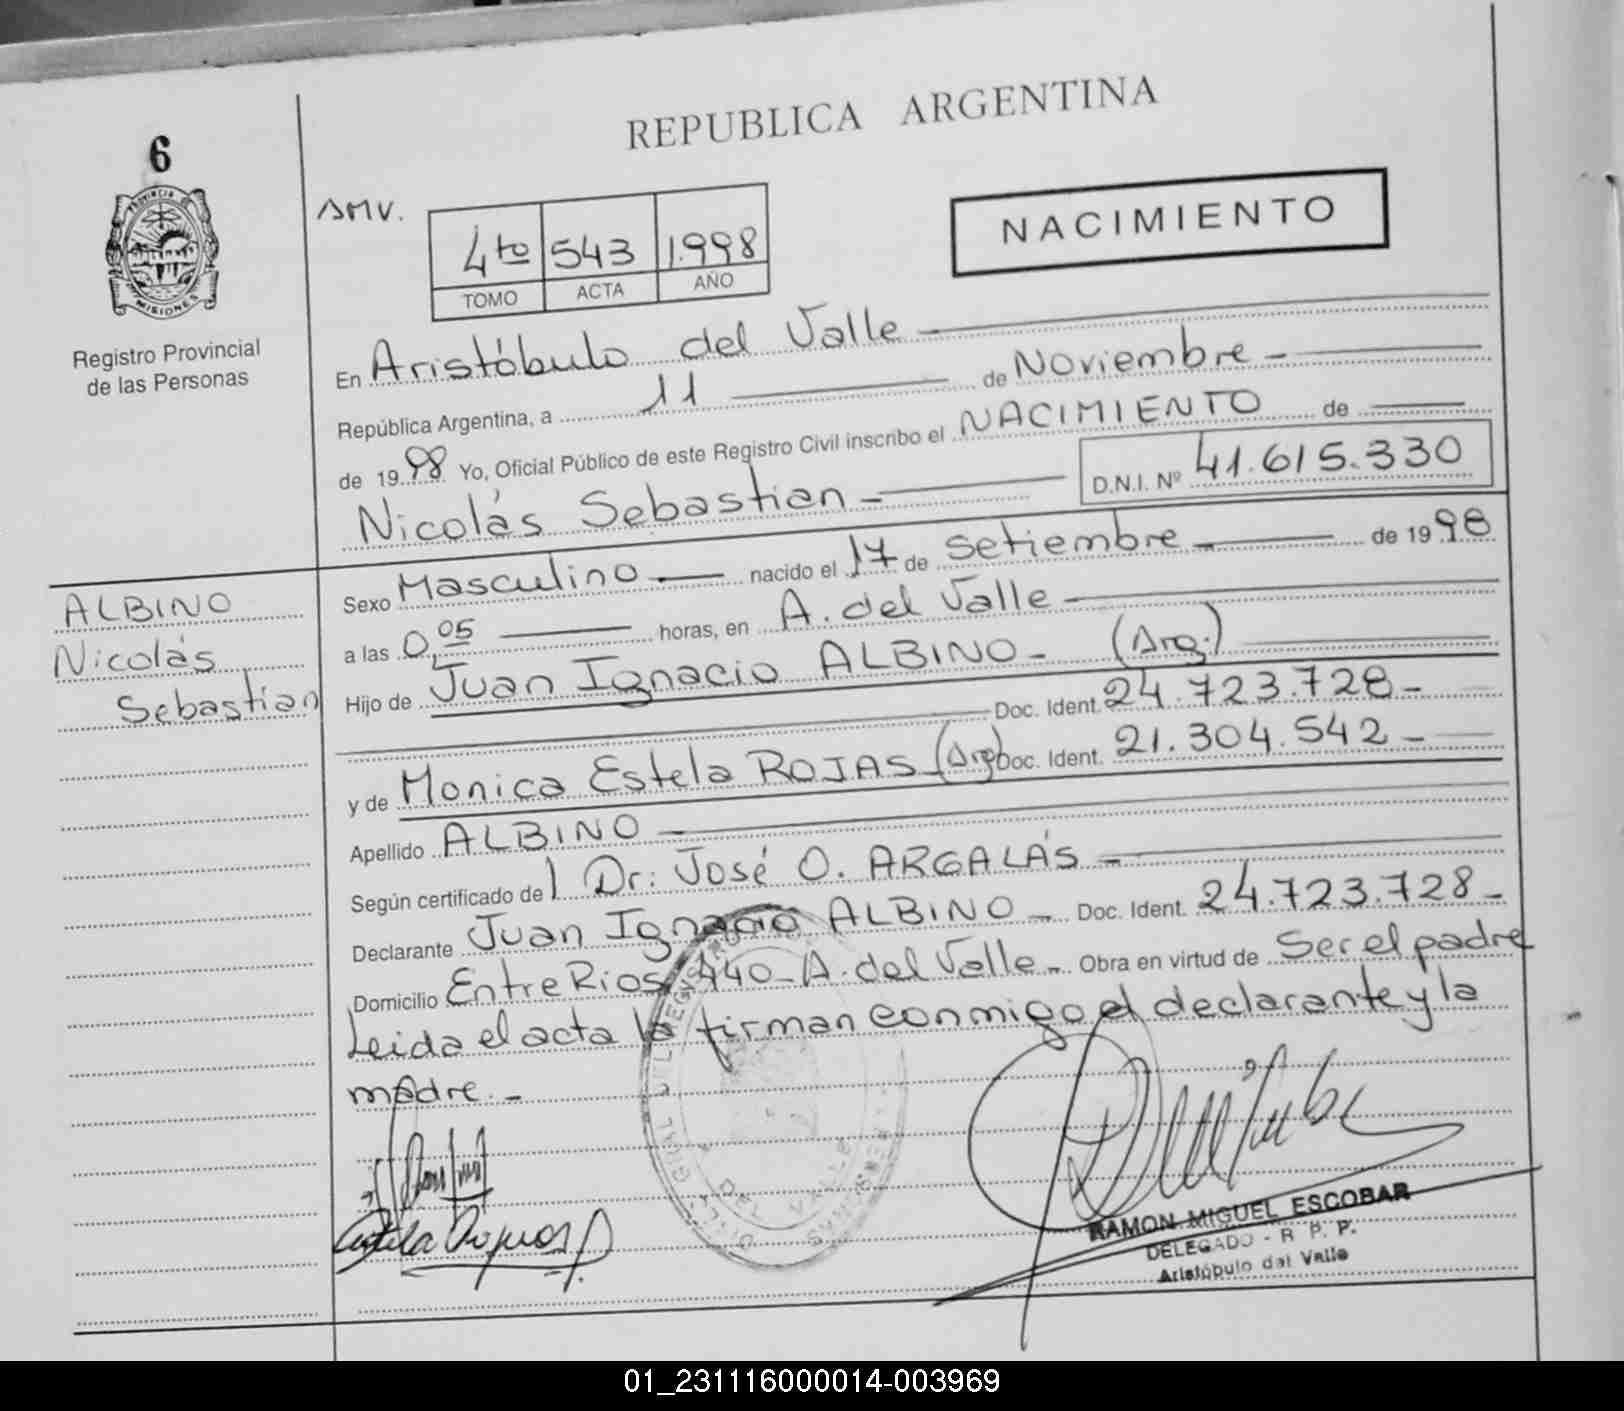 REPUBLICA ARGENTINA
6
PROVINCIA DE
MISIONES
Registro Provincial
de las Personas
AMV.
4to 543 1.998
TOMO ACTA AÑO
NACIMIENTO
En Aristóbulo del Valle
República Argentina, a 11 de Noviembre
de 1998 Yo, Oficial Público de este Registro Civil inscribo el NACIMIENTO de
Nicolás Sebastian D.N.I. Nº 41.615.330
ALBINO
Nicolás
Sebastian
Sexo Masculino nacido el 17 de Setiembre de 1998
a las 0,05 horas, en A. del Valle
Hijo de Juan Ignacio ALBINO - (Arg.)
Doc. Ident. 24.723.728 -
y de Monica Estela ROJAS (Arg) Doc. Ident. 21.304.542 -
Apellido ALBINO
Según certificado del Dr: José O. ARGALÁS
Declarante Juan Ignacio ALBINO - Doc. Ident. 24.723.728 -
Domicilio Entre Rios 440 - A. del Valle - Obra en virtud de Ser el padre
Leida el acta la firman conmigo el declarante y la
madre. -
RAMON MIGUEL ESCOBAR
DELEGADO - R. P. P.
Aristóbulo del Valle
01_231116000014-003969